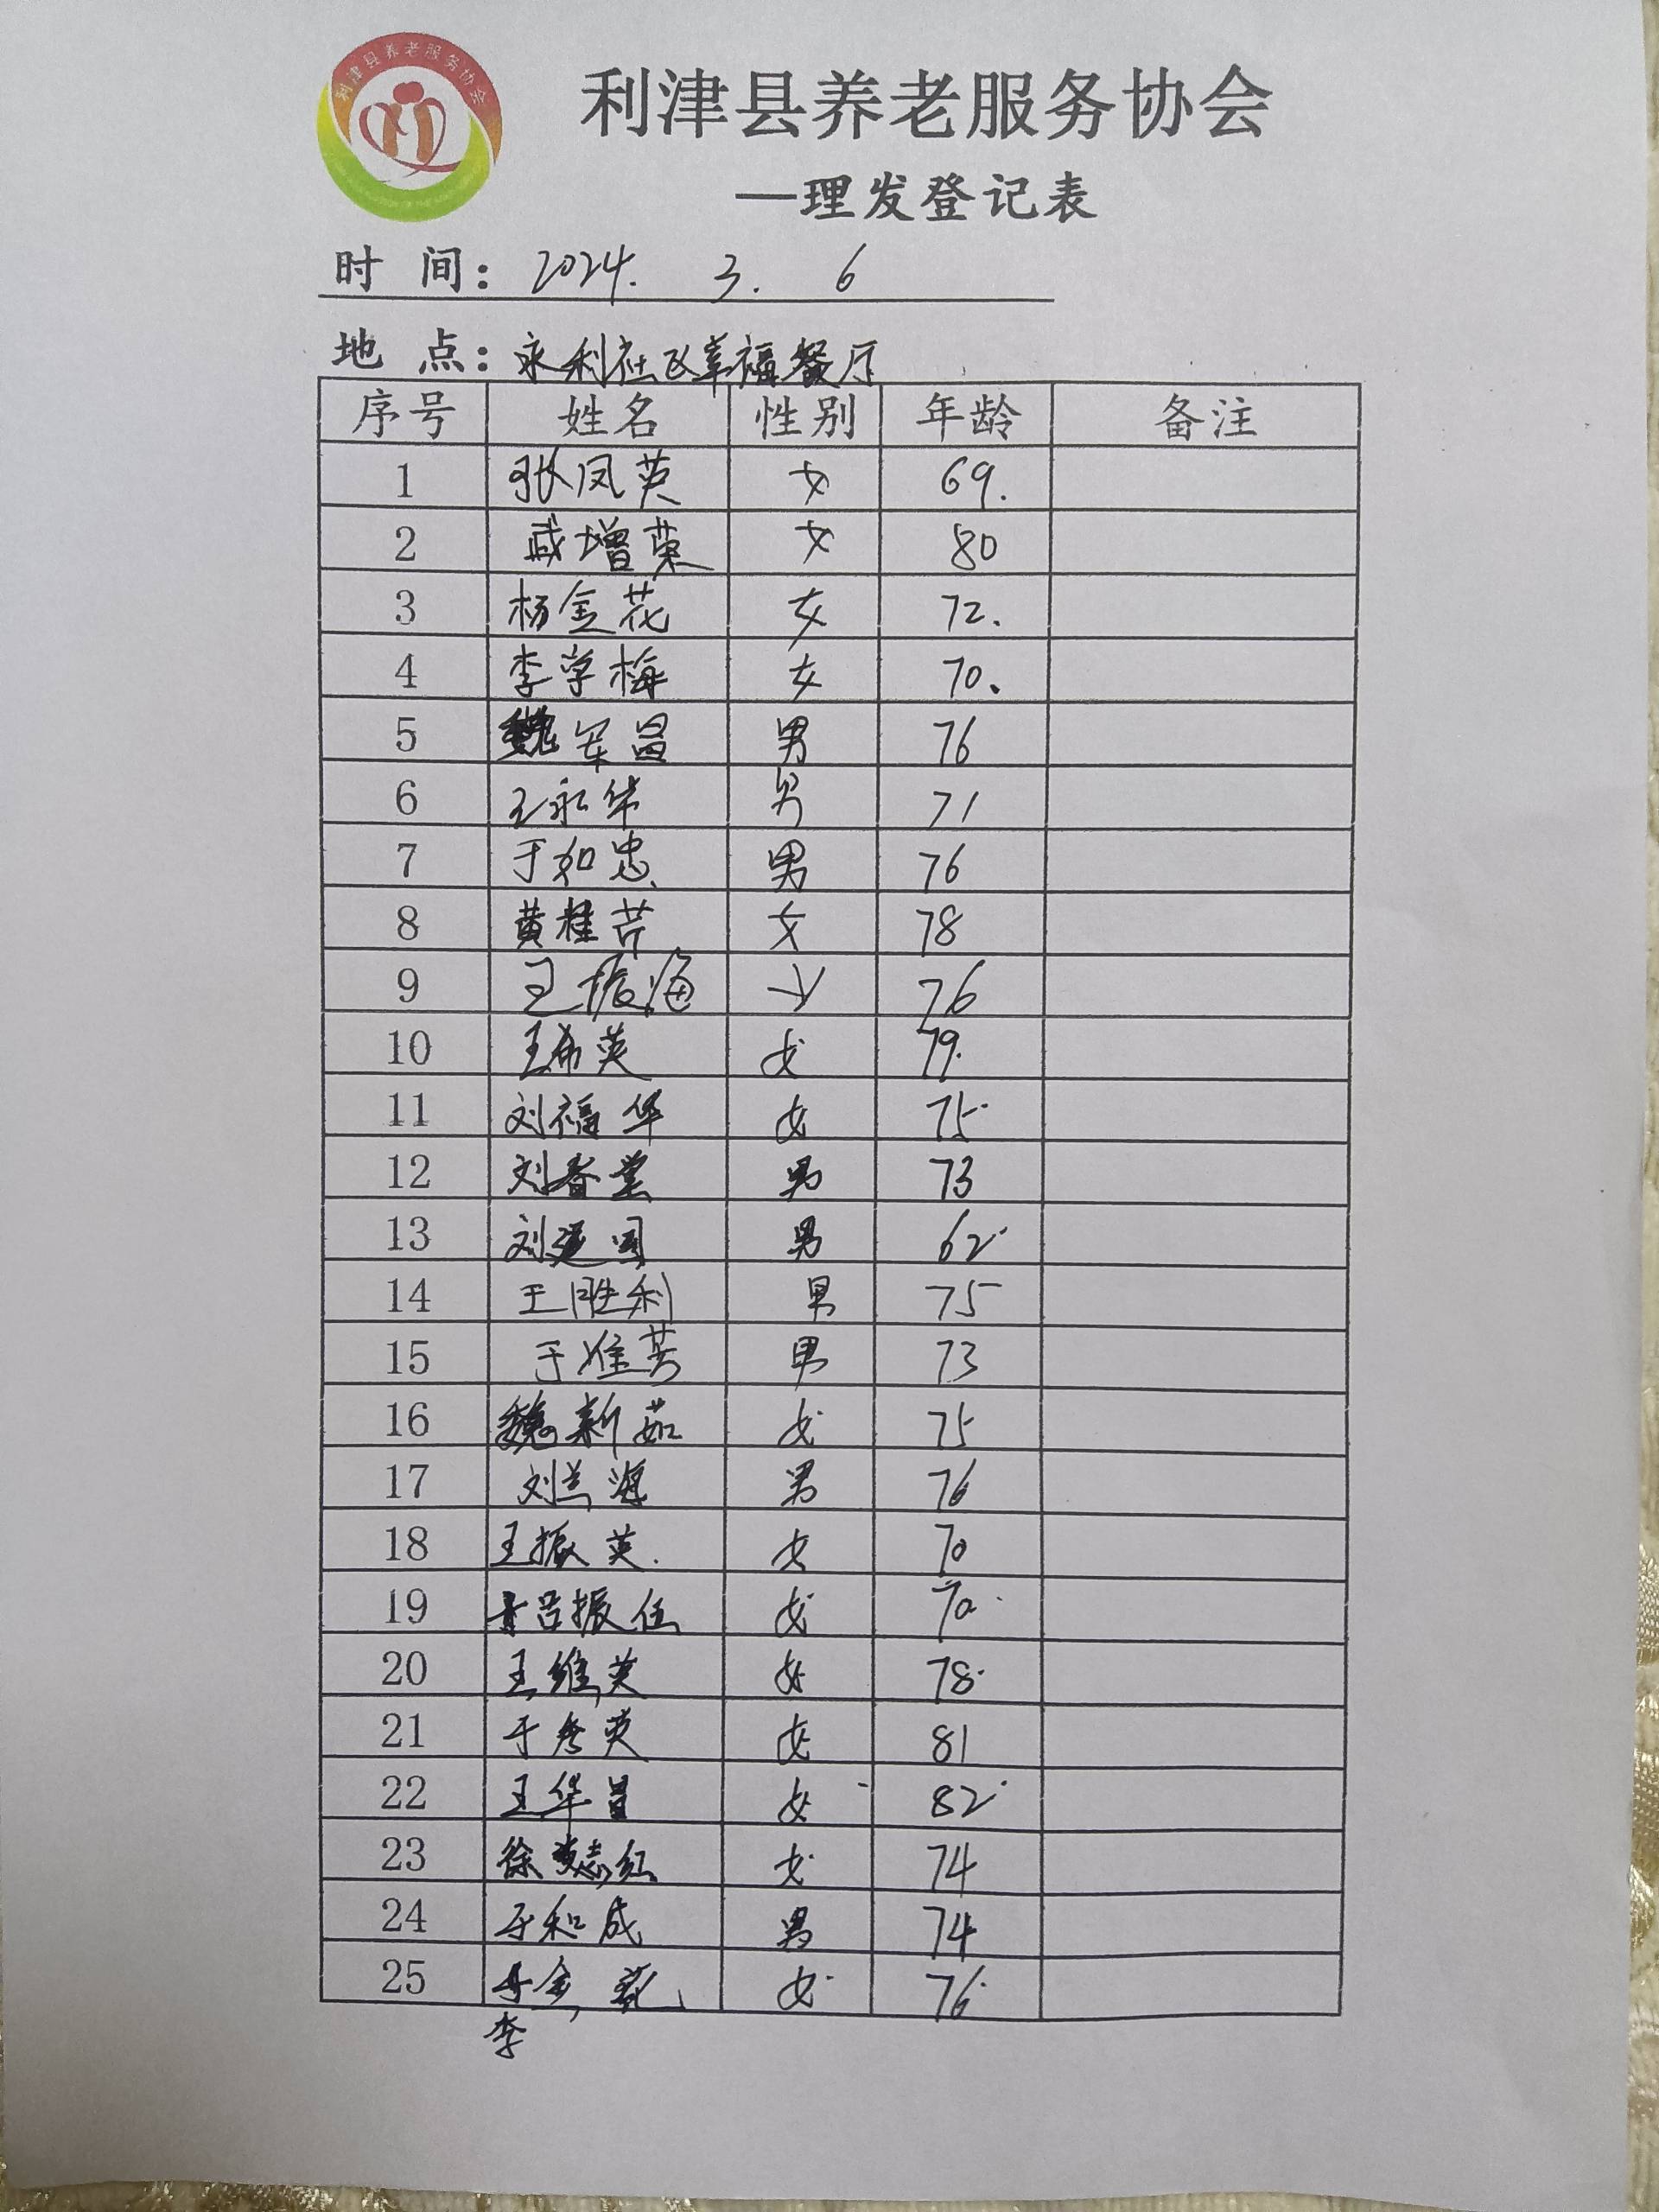 利津县养老服务协会
利津县养老服务协会
—理发登记表
时 间：2024. 3. 6
地 点：永利社区幸福餐厅
序号 姓名 性别 年龄 备注
1 张凤英 女 69.
2 戚增荣 女 80
3 杨金花 女 72.
4 李学梅 女 70.
5 魏军昌 男 76
6 王永华 男 71
7 于如忠 男 76
8 黄桂芹 女 78
9 王振海 女 76
10 王希英 女 79.
11 刘福华 女 75.
12 刘春堂 男 73
13 刘建国 男 62.
14 王胜利 男 75
15 于维芳 男 73
16 魏新茹 女 75
17 刘兰海 男 76
18 王振英. 女 70
19 吕振伍 女 70.
20 王维英 女 78.
21 于秀英 女 81
22 王华昌 女 82.
23 徐志红 女 74
24 于和成 男 74
25 金 女 76.
李